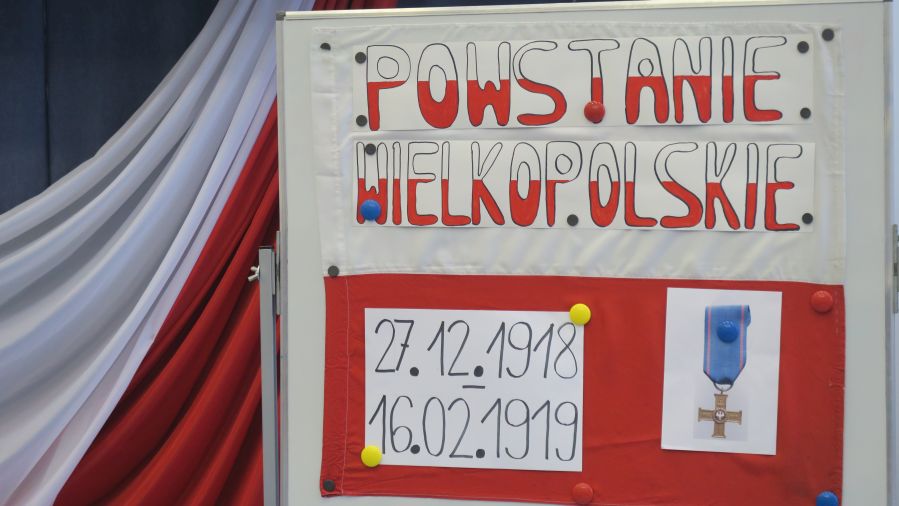 POWSTANIE
WIELKOPOLSKIE
27.12.1918
–
16.02.1919